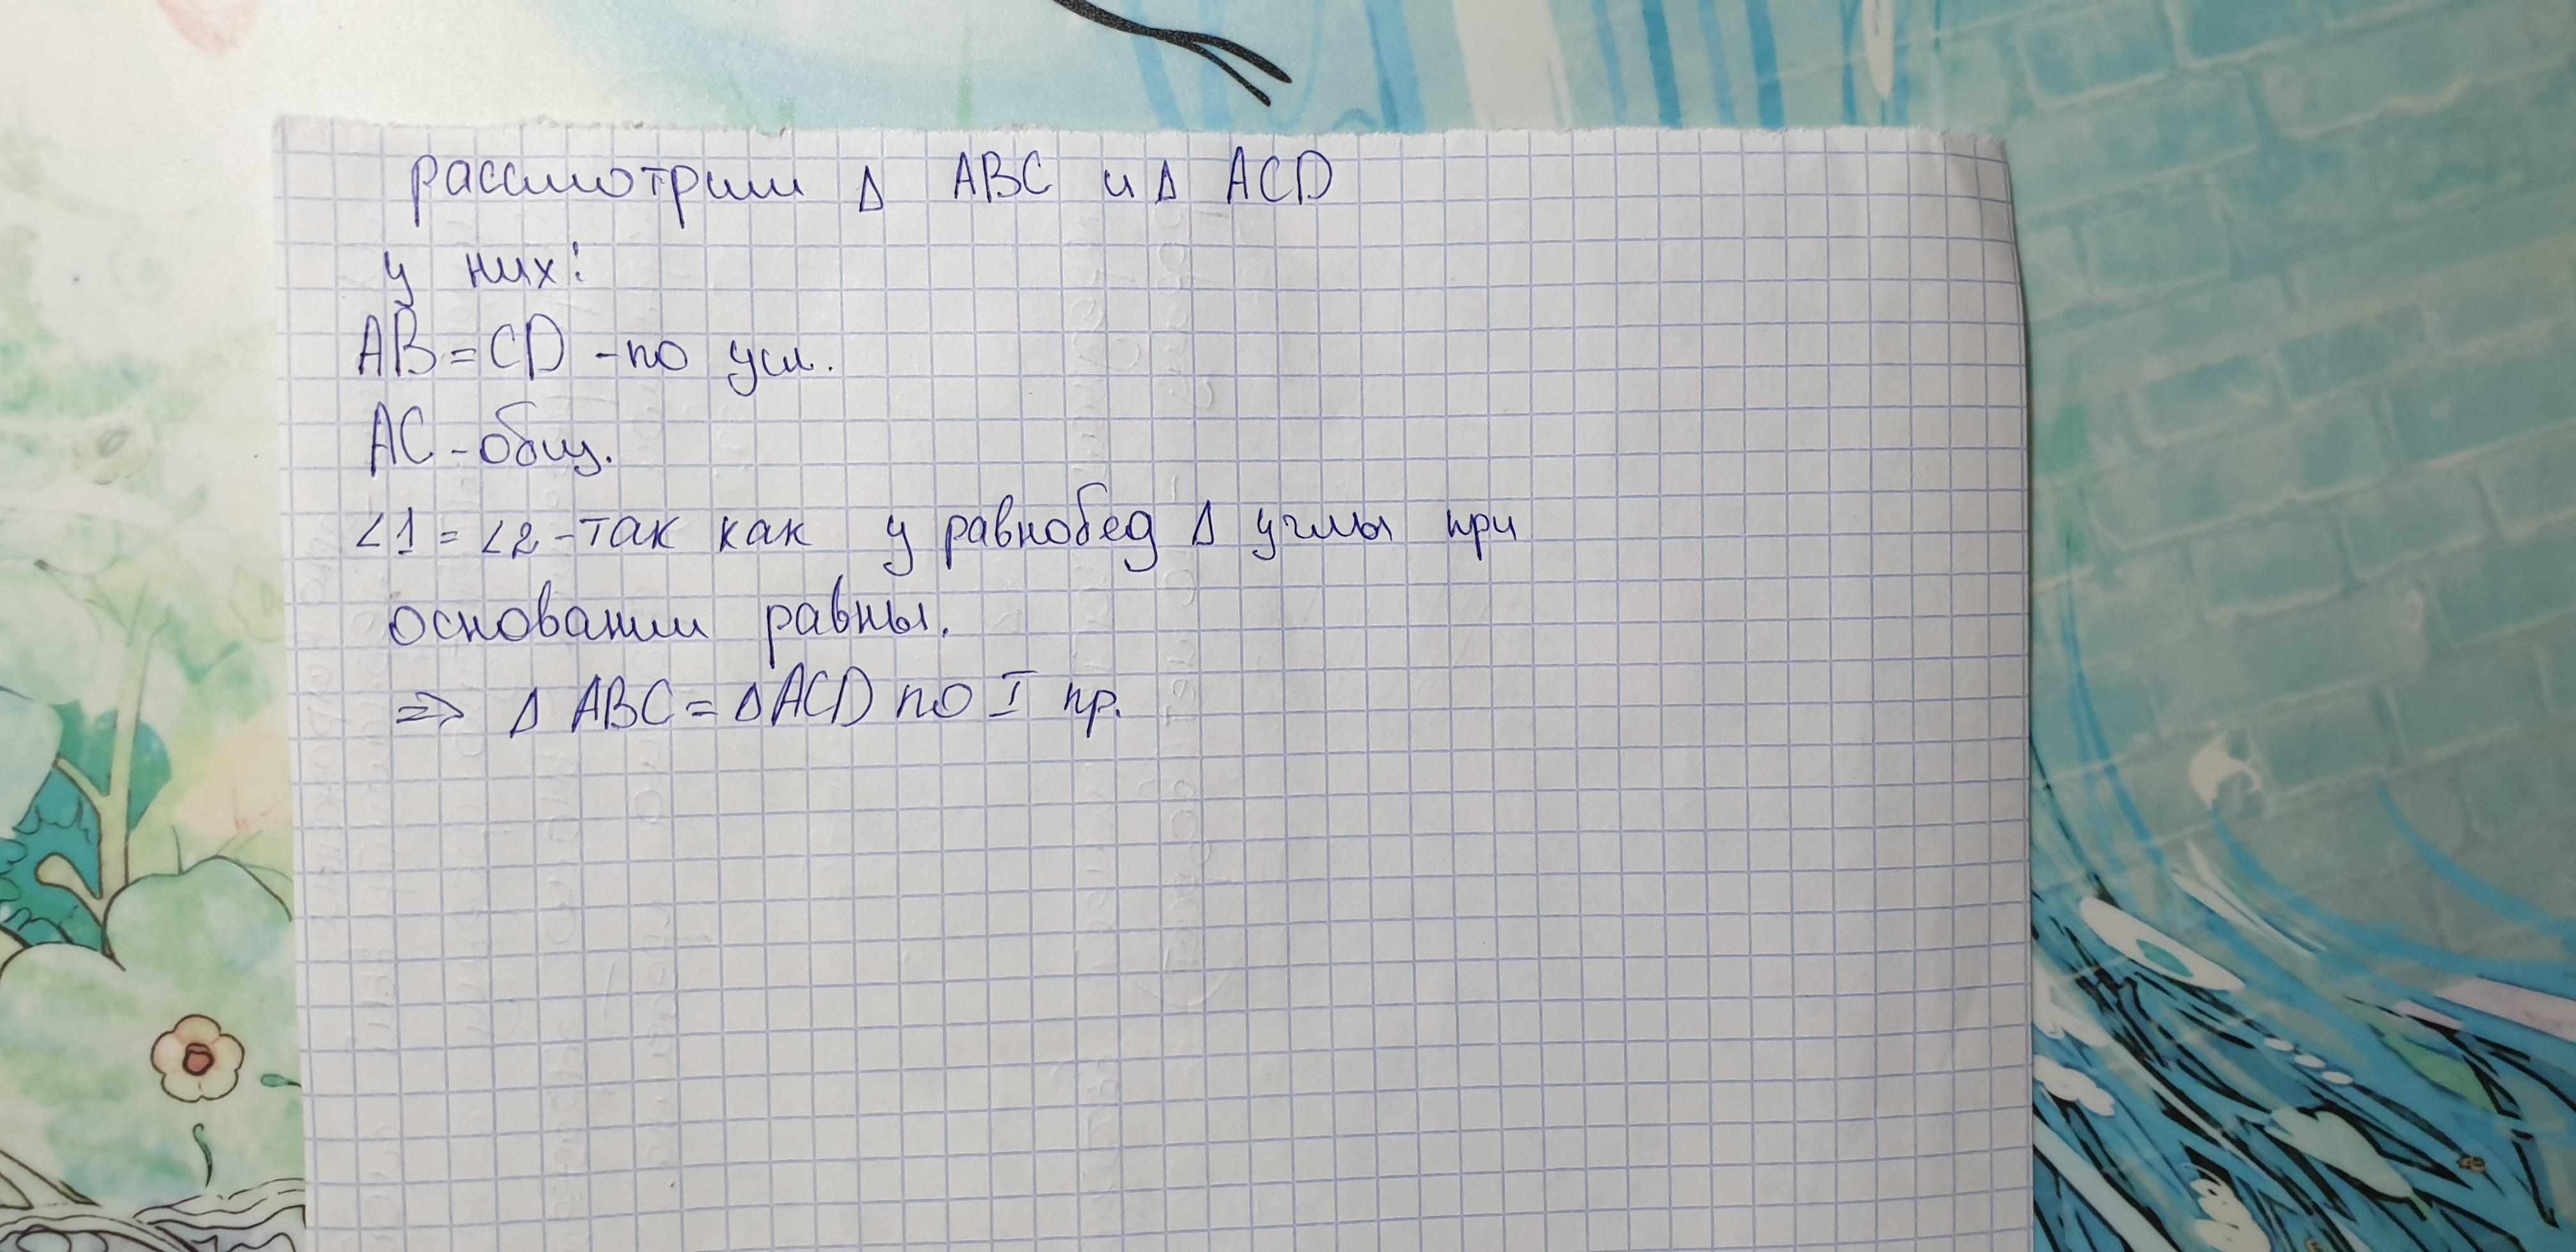 рассмотрим Δ ABC и Δ ACD
у них:
AB = CD - по усл.
AC - общ.
∠1 = ∠2 - так как у равнобед Δ углы при
основании равны.
=> Δ ABC = Δ ACD по I пр.